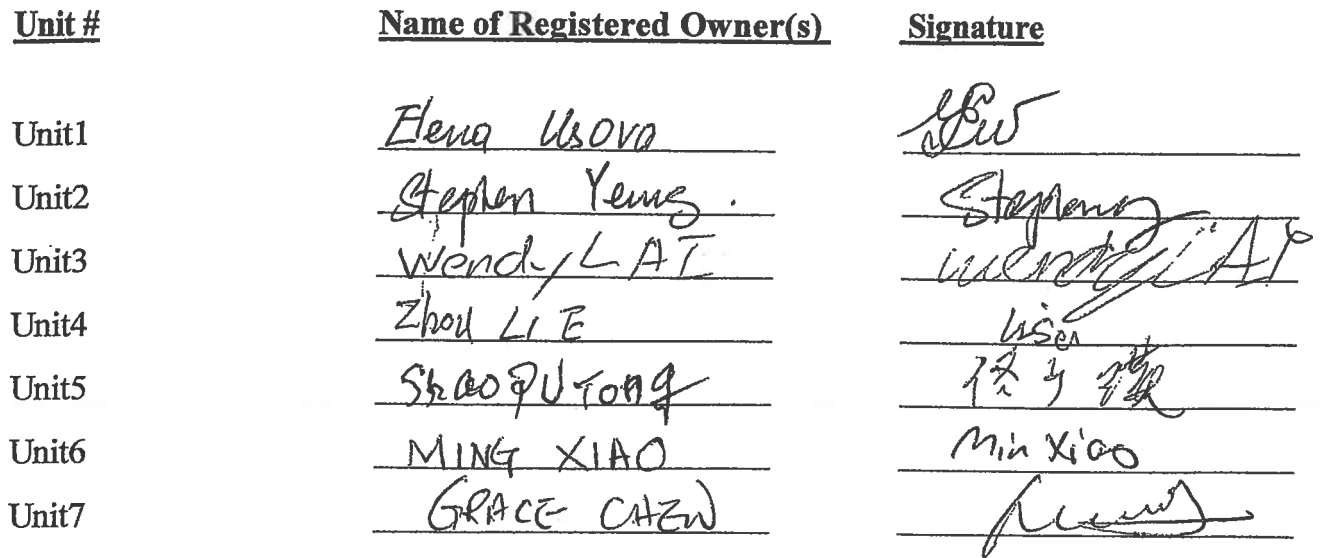 Unit # Name of Registered Owner(s) Signature
Unit1 Elena Usova
Unit2 Stephen Yeung. Stephen
Unit3 Wendy LAI wendy LAI
Unit4 Zhou LI E
Unit5 ShaoQU TONG
Unit6 MING XIAO Min Xiao
Unit7 GRACE CHEN